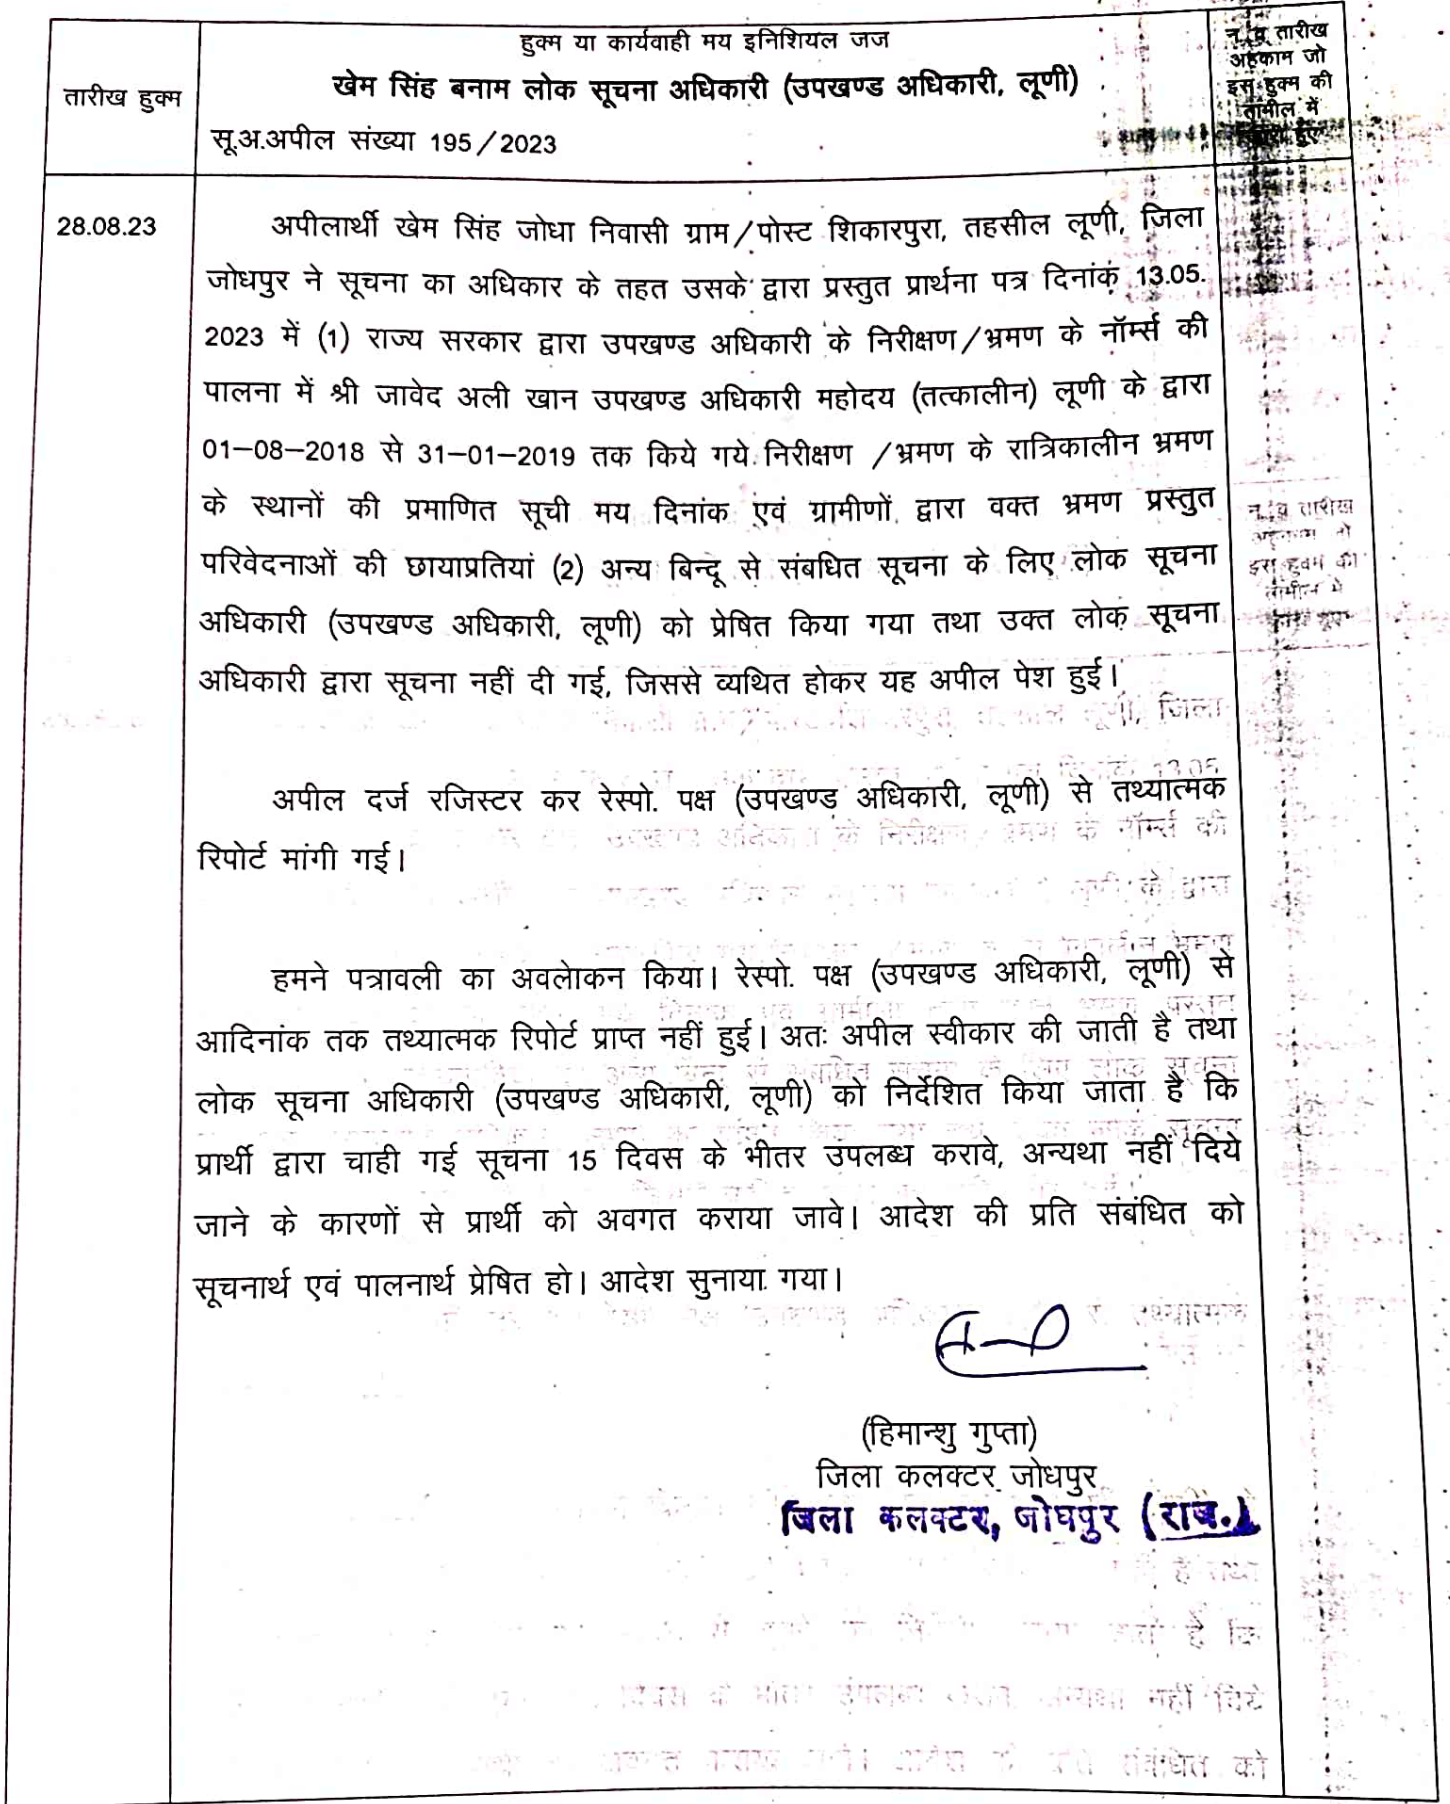 हुक्म या कार्यवाही मय इनिशियल जज
खेम सिंह बनाम लोक सूचना अधिकारी (उपखण्ड अधिकारी, लूणी)
सू.अ.अपील संख्या 195/2023
तारीख हुक्म
न. व तारीख
अहकाम जो
इस हुक्म की
तामील में
हुए
28.08.23
अपीलार्थी खेम सिंह जोधा निवासी ग्राम/पोस्ट शिकारपुरा, तहसील लूणी, जिला
जोधपुर ने सूचना का अधिकार के तहत उसके द्वारा प्रस्तुत प्रार्थना पत्र दिनांक 13.05.
2023 में (1) राज्य सरकार द्वारा उपखण्ड अधिकारी के निरीक्षण/भ्रमण के नॉर्म्स की
पालना में श्री जावेद अली खान उपखण्ड अधिकारी महोदय (तत्कालीन) लूणी के द्वारा
01–08–2018 से 31–01–2019 तक किये गये निरीक्षण /भ्रमण के रात्रिकालीन भ्रमण
के स्थानों की प्रमाणित सूची मय दिनांक एंव ग्रामीणों द्वारा वक्त भ्रमण प्रस्तुत
परिवेदनाओं की छायाप्रतियां (2) अन्य बिन्दू से संबधित सूचना के लिए लोक सूचना
अधिकारी (उपखण्ड अधिकारी, लूणी) को प्रेषित किया गया तथा उक्त लोक सूचना
अधिकारी द्वारा सूचना नहीं दी गई, जिससे व्यथित होकर यह अपील पेश हुई।
अपील दर्ज रजिस्टर कर रेस्पो. पक्ष (उपखण्ड अधिकारी, लूणी) से तथ्यात्मक
रिपोर्ट मांगी गई।
हमने पत्रावली का अवलेाकन किया। रेस्पो. पक्ष (उपखण्ड अधिकारी, लूणी) से
आदिनांक तक तथ्यात्मक रिपोर्ट प्राप्त नहीं हुई। अतः अपील स्वीकार की जाती है तथा
लोक सूचना अधिकारी (उपखण्ड अधिकारी, लूणी) को निर्देशित किया जाता है कि
प्रार्थी द्वारा चाही गई सूचना 15 दिवस के भीतर उपलब्ध करावे, अन्यथा नहीं दिये
जाने के कारणों से प्रार्थी को अवगत कराया जावे। आदेश की प्रति संबंधित को
सूचनार्थ एवं पालनार्थ प्रेषित हो। आदेश सुनाया गया।
(हिमान्शु गुप्ता)
जिला कलक्टर जोधपुर
जिला कलक्टर, जोधपुर (राज.)